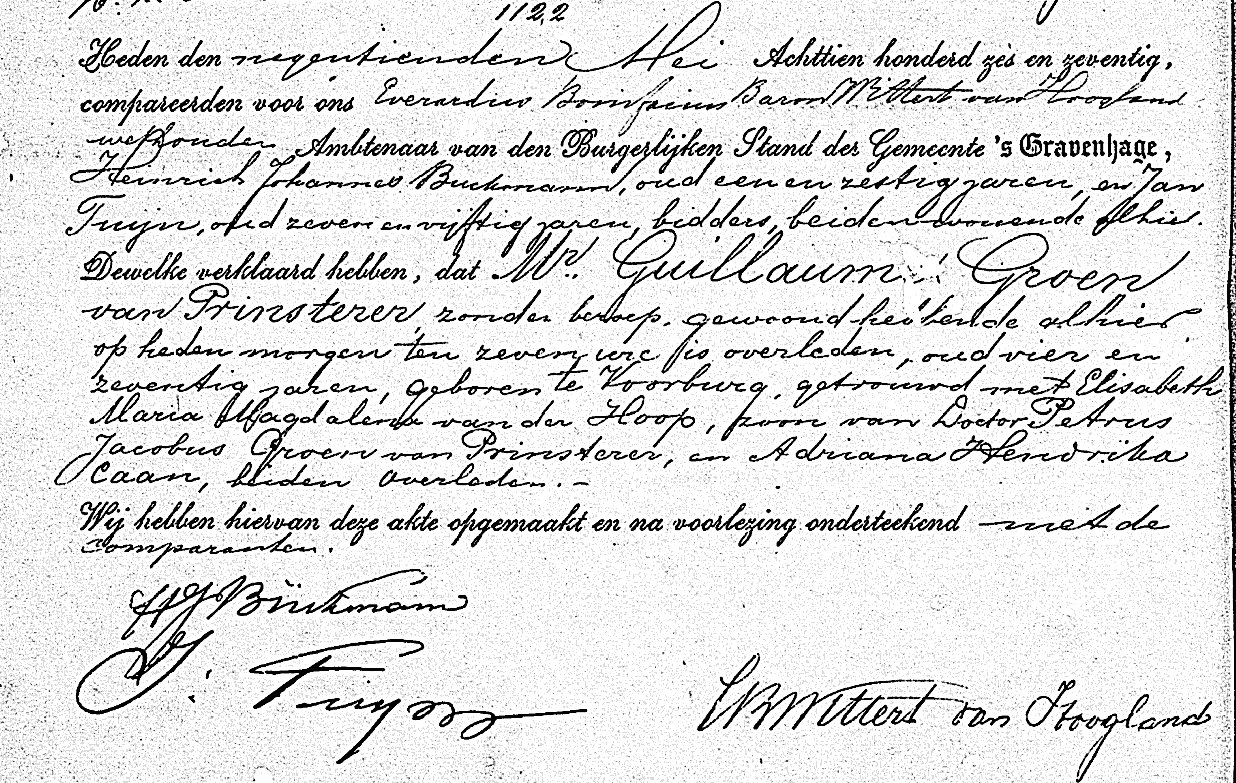 1122
Heden den negentienden Mei Achttien honderd zes en zeventig,
compareerden voor ons Everardus Bonifacius Baron Wittert van Hoogland
wethouder Ambtenaar van den Burgerlijken Stand der Gemeente 's Gravenhage,
Heinrich Johannes Buckmann, oud een en zestig jaren, en Jan
Tuijn, oud zeven en vijftig jaren, bidders, beiden wonende alhier.
Dewelke verklaard hebben, dat Mr. Guillaume Groen
van Prinsterer, zonder beroep, gewoond hebbende alhier
op heden morgen ten zeven ure is overleden, oud vier en
zeventig jaren, geboren te Voorburg, getrouwd met Elisabeth
Maria Magdalena van der Hoop, zoon van Doctor Petrus
Jacobus Groen van Prinsterer, en Adriana Hendrika
Caan, beiden overleden. -
Wij hebben hiervan deze akte opgemaakt en na voorlezing onderteekend met de
comparanten.
HJ Bückmann
J. Tuijn
EB Wittert van Hoogland